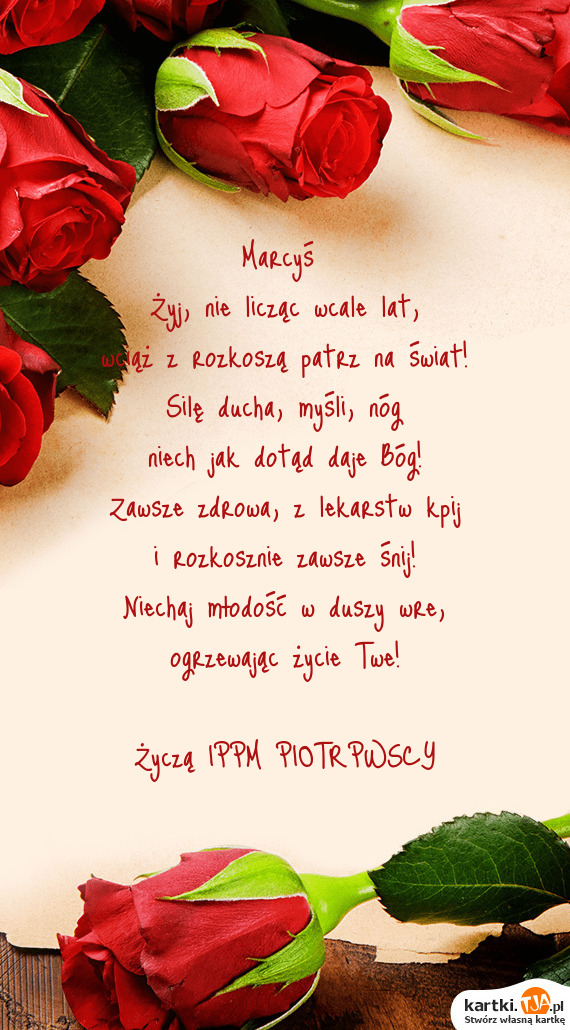 Marcyś
Żyj, nie licząc wcale lat,
wciąż z rozkoszą patrz na świat!
Silę ducha, myśli, nóg
niech jak dotąd daje Bóg!
Zawsze zdrowa, z lekarstw kpij
i rozkosznie zawsze śnij!
Niechaj młodość w duszy wre,
ogrzewając życie Twe!
Życzą IPPM PIOTRPWSCY
kartki.TJA.pl
Stwórz własną kartkę